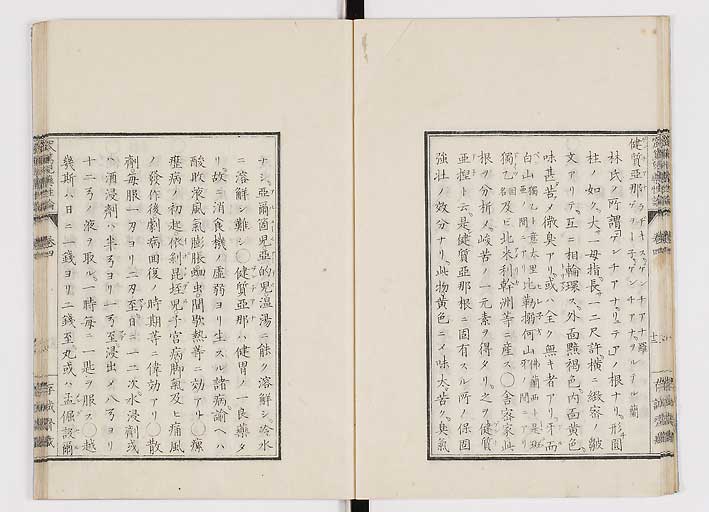 健質亞那 ゲンチアナ
林氏ノ所謂ゲンチアナリテアノ根ナリ形圓
柱ノ如ク大サ一母指長サ一二尺許横ニ緻密ノ皺
文アリテ互ニ相輪環ス外面黯褐色内面黄色
味甚苦ク微臭アリ或ハ全ク無キ者アリ牙而
白山 獨乙ト意太里
獨乙 國名及ヒ北米利幹洲等ニ産ス○舎密家此
根ヲ分析メ峻苦ノ一元素ヲ得タリ之ヲ健質
亞捏ト云是健質亞那根ニ固有スル所ノ保固
強壮ノ效分ナリ此物黄色ニメ味太苦ク臭氣
ナシ亞爾箇兒亞的兒温湯ニ能ク溶解シ冷水
ニ溶解シ難シ○健質亞那ハ健胃ノ一良藥タ
リ故ニ消食機ノ虚弱ヨリ生スル諸病諭ヘハ
酸敗液風氣膨脹蛔虫間歇熱等ニ効アリ○瘰
癧病ノ初起依剥昆垤兒子宮病脚氣及ヒ痛風
ノ發作後劇病回復ノ時期等ニ偉効アリ○散
劑毎服一刃ヨリ二刃至日ニ一二次水浸劑或
ハ酒浸劑ハ半弓ヨリ一弓至浸出メ八弓ヨリ
十二弓ノ液ヲ取ル一時毎ニ一匙ヲ服ス○越
幾斯ハ日ニ一錢ヨリ二錢至丸或ハ孟偓設爾
卷四